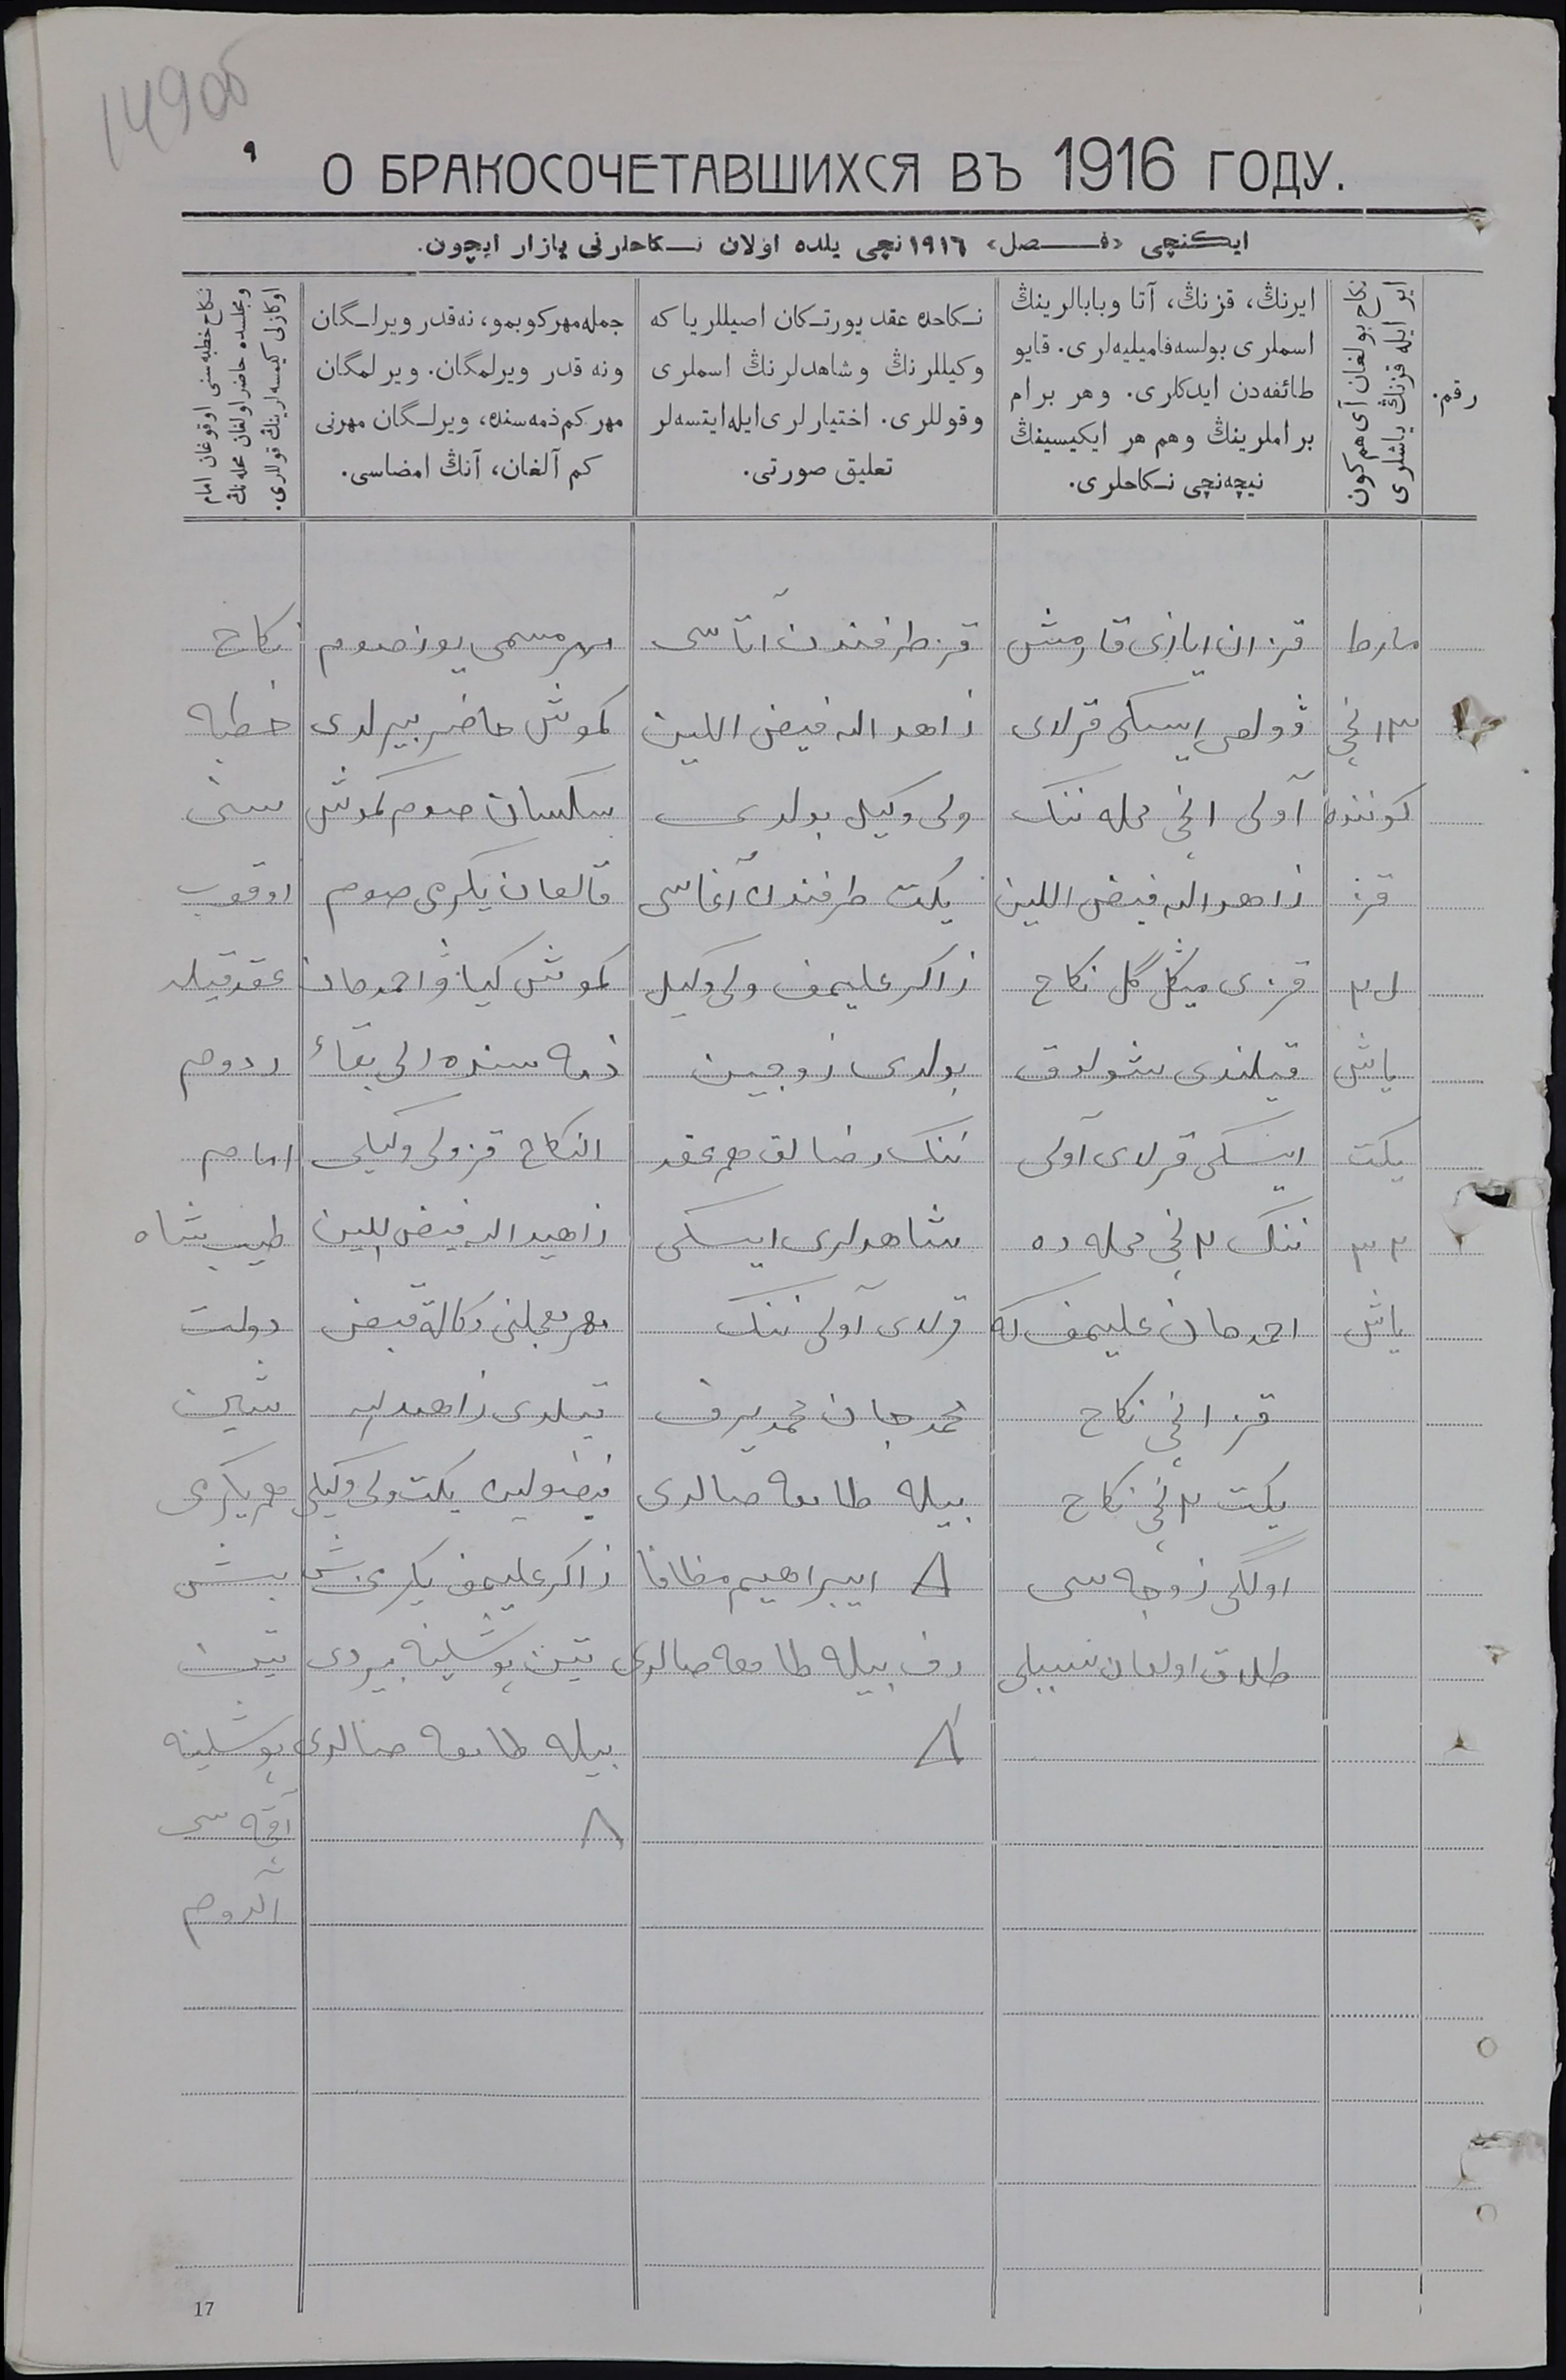 149об
٩
О БРАКОСОЧЕТАВШИХСЯ ВЪ 1916 ГОДУ.
ایکنچی «فصل» ١٩١٦ نچی یلده اولان نكاحلرنی یازار ایچون.
رقم.
نكاح بولغان آی هم كون
ایر ایله قزنڭ یاشلری
ایرنڭ، قزنڭ، آتا وبابالرینڭ
اسملری بولسه فامیلیه‌لری. قایو
طائفه‌دن ایدكلری. وهر برام
براملرینڭ وهم هر ایكیسینڭ
نیچه‌نچی نكاحلری.
نكاحده عقد یورتكان اصیللر یا كه
وكیللرنڭ وشاهدلرنڭ اسملری
وقوللری. اختیارلری ایله ایتسه‌لر
تعلیق صورتی.
جمله مهر كوبمو، نه‌قدر ویرلگان
ونه قدر ویرلمگان. ویرلمگان
مهر كم ذمه‌سنده، ویرلگان مهرنی
كم آلغان، آنڭ امضاسی.
نكاح خطبه‌سنی اوقوغان امام
ومجلسده حاضر اولغان محله‌نڭ
اوكازلی كیمسه‌لرینڭ قوللری.
مارطا
١٣ نچی
كوننده
قز
٢٠
یاش
یكت
٣٣
یاش
قزان ایازی قارمش
ڤولصی ایسكی قرلای
آولی ١ نچی محله ننك
زاهد الله فیض اللین
قزی میڭل گل نكاح
قیلندی شولوق
ایسكی قرلای آولی
ننك ٢ نچی محله ده
احمدجان علیمف كه
قز ١ نچی نكاح
یكت ٢ نچی نكاح
اولگی زوجه سی
طلاق اولغان سببلی
قز طرفندن آتاسی
زاهد الله فیض اللین
ولی وكیل بولدی
یكت طرفندن آغاسی
زاكر علیمف ولی وكیل
بولدی زوجین
ننك رضالق هم عقد
شاهدلری ایسكی
قرلای آولی ننك
محمدجان محمدیرف
بیله طامغه صالدی
ایبراهیم مظافا
رف بیله طامغه صالدی
مهر مسمی یوز صوم
كموش حاضر بیرلدی
سكسان صوم كموش
قالغان یكرمی صوم
كموش كیاڤ احمدجان
ذمه سنده الی بقاء
النكاح قز ولی وكیلی
زاهید الله فیض اللین
مهر معجلنی وكالة قبض
قیلدی زاهد الله
فیضولین یكت ولی وكیلی
زاكر علیمف یكرمی بش
تین پوشلینه بیردی
بیله طامغه صالدی
نكاح
خطبه
سنی
اوقوب
عقد قیلد
ردوم
امام
طیب شاه
دولت
شین
هم یكرمی
بش
تین
پوشلینه
آقچه سی
آلدوم
17